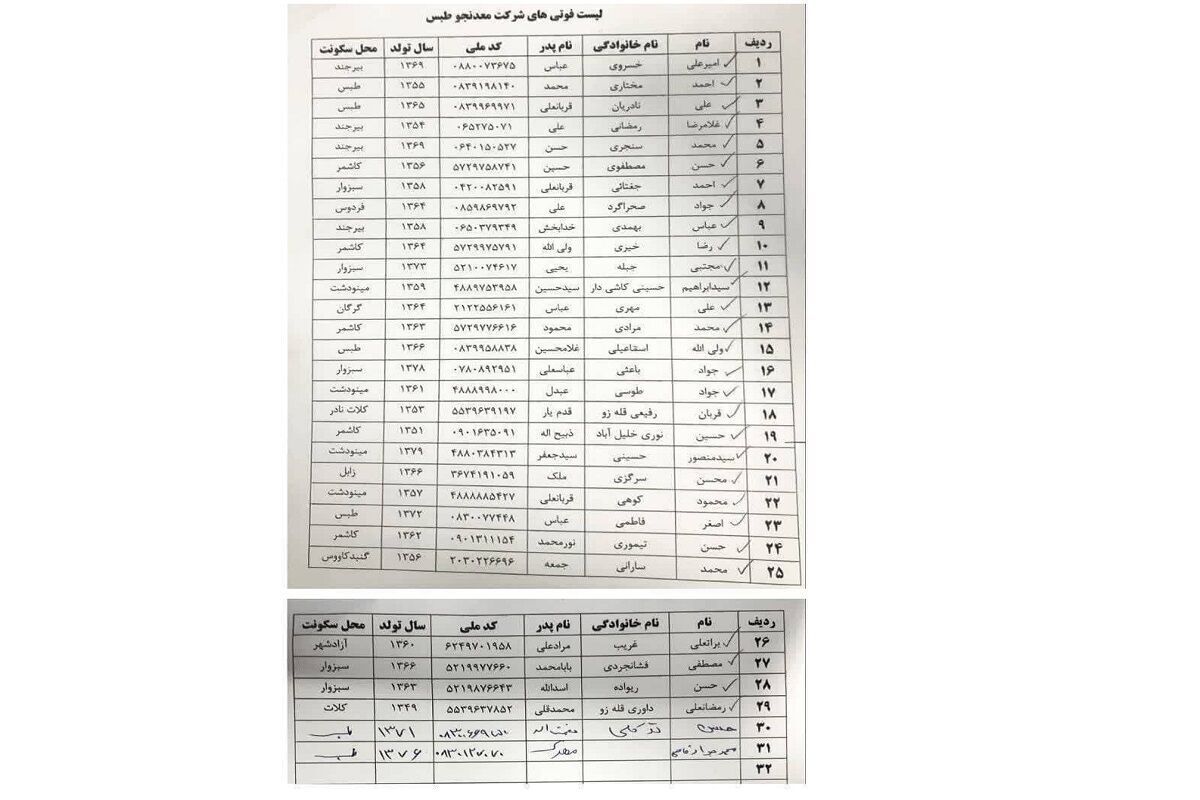 لیست فوتی های شرکت معدنجو طبس
ردیف نام نام خانوادگی نام پدر کد ملی سال تولد محل سکونت
۱ امیرعلی خسروی عباس ۰۸۸۰۰۷۳۶۷۵ ۱۳۶۹ بیرجند
۲ احمد مختاری محمد ۰۸۳۹۱۹۸۱۴۰ ۱۳۵۵ طبس
۳ علی نادریان قربانعلی ۰۸۳۹۹۶۹۹۷۱ ۱۳۶۵ طبس
۴ غلامرضا رمضانی علی ۰۶۵۲۷۵۰۷۱ ۱۳۵۴ بیرجند
۵ محمد سنجری حسن ۰۶۴۰۱۵۰۵۲۷ ۱۳۶۹ بیرجند
۶ حسن مصطفوی حسین ۵۷۲۹۷۵۸۷۴۱ ۱۳۵۶ کاشمر
۷ احمد جغتائی قربانعلی ۰۴۲۰۰۸۲۵۹۱ ۱۳۵۸ سبزوار
۸ جواد صحراگرد علی ۰۸۵۹۸۶۹۷۹۲ ۱۳۶۴ فردوس
۹ عباس بهمدی خدابخش ۰۶۵۰۳۷۹۳۴۹ ۱۳۵۸ بیرجند
۱۰ رضا خیری ولی الله ۵۷۲۹۹۷۵۷۹۱ ۱۳۶۴ کاشمر
۱۱ مجتبی جبله یحیی ۵۲۱۰۰۷۴۶۱۷ ۱۳۷۳ سبزوار
۱۲ سیدابراهیم حسینی کاشی دار سیدحسین ۴۸۸۹۷۵۳۹۵۸ ۱۳۵۹ مینودشت
۱۳ علی مهری عباس ۲۱۲۲۵۵۶۱۶۱ ۱۳۶۴ گرگان
۱۴ محمد مرادی محمود ۵۷۲۹۷۷۶۶۱۶ ۱۳۶۳ کاشمر
۱۵ ولی الله اسماعیلی غلامحسین ۰۸۳۹۹۵۸۸۳۸ ۱۳۶۶ طبس
۱۶ جواد باعثی عباسعلی ۰۷۸۰۸۹۲۹۵۱ ۱۳۷۸ سبزوار
۱۷ جواد طوسی عبدل ۴۸۸۸۹۹۸۰۰۰ ۱۳۶۱ مینودشت
۱۸ قربان رفیعی قله زو قدم یار ۵۵۳۹۶۳۹۱۹۷ ۱۳۵۳ کلات نادر
۱۹ حسین نوری خلیل آباد ذبیح اله ۰۹۰۱۶۳۵۰۹۱ ۱۳۵۱ کاشمر
۲۰ سیدمنصور حسینی سیدجعفر ۴۸۸۰۳۸۴۳۱۳ ۱۳۷۹ مینودشت
۲۱ محسن سرگزی ملک ۳۶۷۴۱۹۱۰۵۹ ۱۳۶۶ زابل
۲۲ محمود کوهی قربانعلی ۴۸۸۸۸۸۵۴۲۷ ۱۳۵۷ مینودشت
۲۳ اصغر فاطمی عباس ۰۸۳۰۰۷۷۴۴۸ ۱۳۷۲ طبس
۲۴ حسن تیموری نورمحمد ۰۹۰۱۳۱۱۱۵۴ ۱۳۶۲ کاشمر
۲۵ محمد سارانی جمعه ۲۰۳۰۲۲۶۶۹۶ ۱۳۵۶ گنبدکاووس
ردیف نام نام خانوادگی نام پدر کد ملی سال تولد محل سکونت
۲۶ براتعلی غریب مرادعلی ۶۲۴۹۷۰۱۹۵۸ ۱۳۶۰ آزادشهر
۲۷ مصطفی فشانجردی بابامحمد ۵۲۱۹۹۷۷۶۶۰ ۱۳۶۶ سبزوار
۲۸ حسن ریواده اسدالله ۵۲۱۹۸۷۶۶۴۳ ۱۳۶۳ سبزوار
۲۹ رمضانعلی داوری قله زو محمدقلی ۵۵۳۹۶۳۷۸۵۲ ۱۳۴۹ کلات
۳۰ ۱۳۷۱
۳۱ ۰۸۳۰۱۲۷۰۷۰ ۱۳۷۶ طبس
۳۲